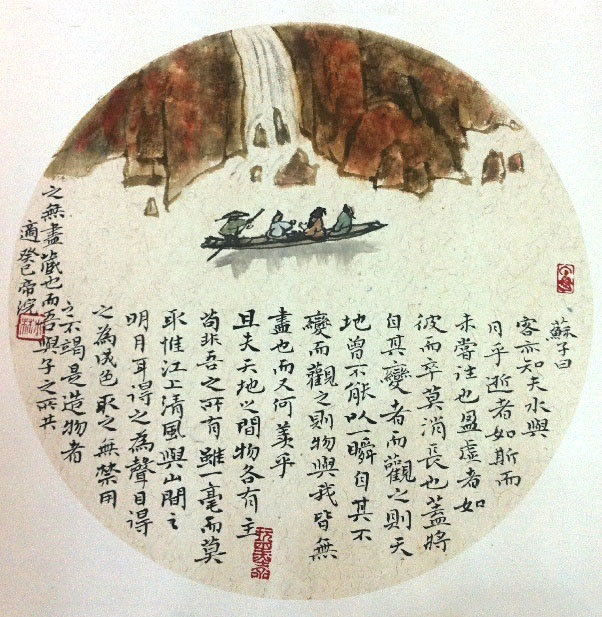 蘇子曰
客亦知夫水與
月乎逝者如斯而
未嘗往也盈虛者如
彼而卒莫消長也蓋將
自其變者而觀之則天
地曾不能以一瞬自其不
變而觀之則物與我皆無
盡也而又何羨乎
且夫天地之間物各有主
苟非吾之所有雖一毫而莫
取惟江上清風與山間之
明月耳得之為聲目得
之為成色取之無禁用
之不竭是造物者
之無盡藏也而吾與子之所共
適癸巳